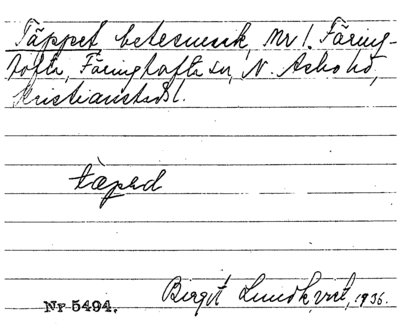 Täppet betesmark, Nr 1. Färing-
tofta, Färingtofta sn, N. Åsbo hd,
Kristianstad l.
tæped
Birgit Lundkvist, 1936.
Nr 5494.